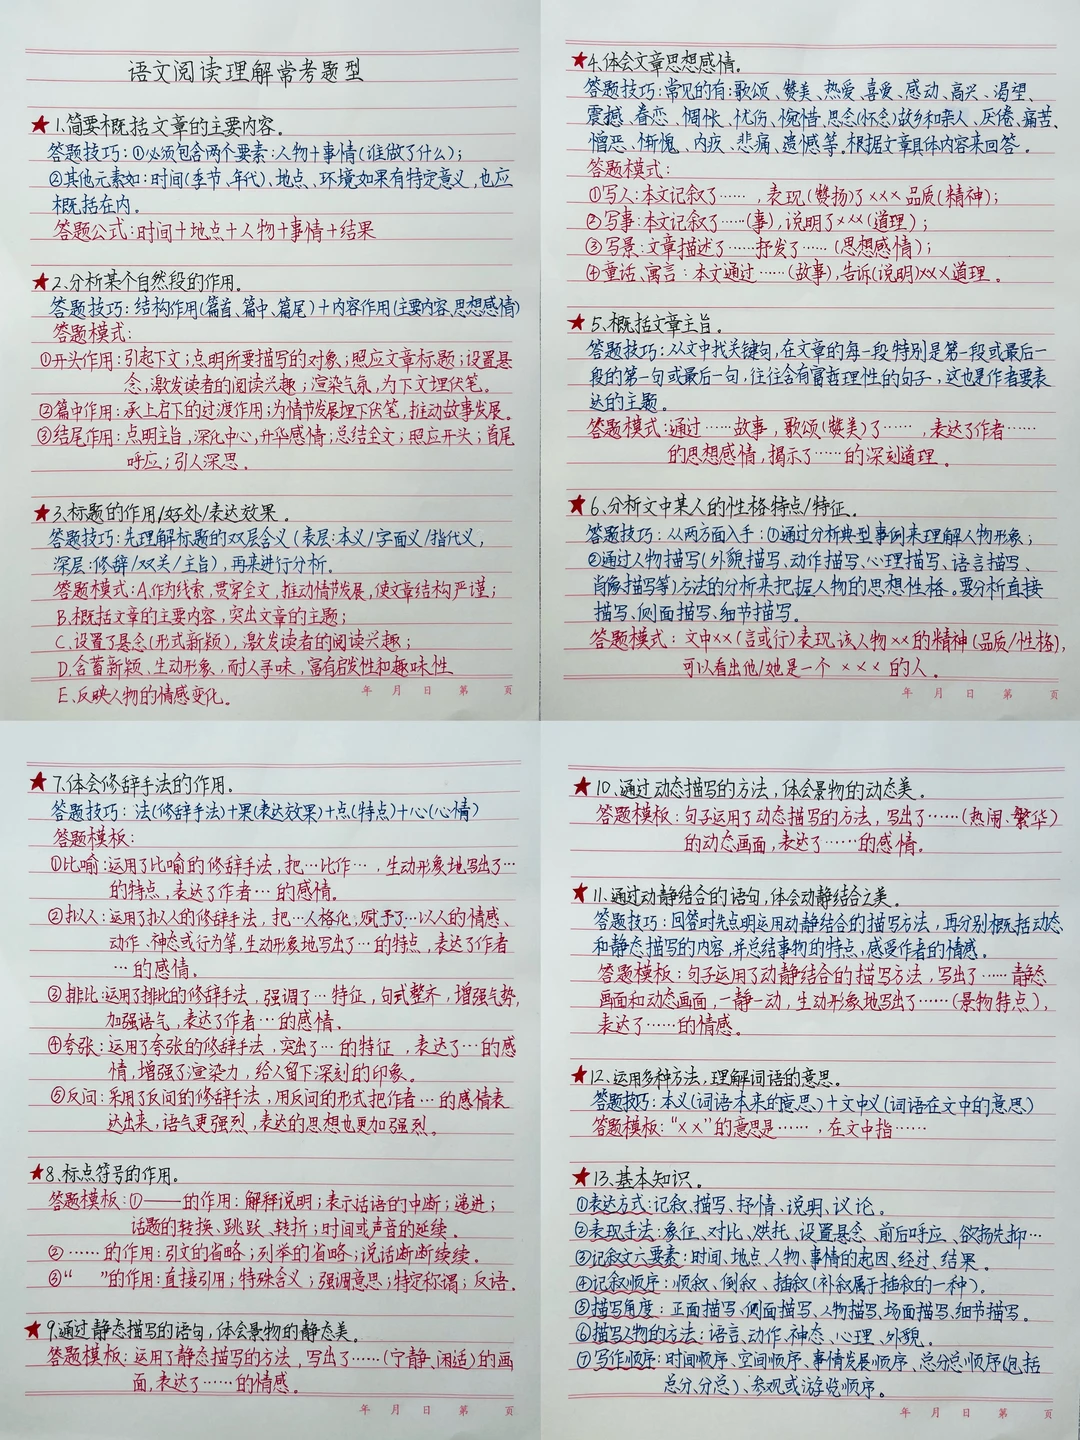 语文阅读理解常考题型
★1.简要概括文章的主要内容。
答题技巧:①必须包含两个要素:人物+事情(谁做了什么);
②其他元素如:时间(季节、年代)、地点、环境如果有特定意义,也应
概括在内。
答题公式:时间+地点+人物+事情+结果
★2.分析某个自然段的作用。
答题技巧:结构作用(篇首、篇中、篇尾)+内容作用(主要内容、思想感情)
答题模式:
①开头作用:引起下文;点明所要描写的对象;照应文章标题;设置悬
念,激发读者的阅读兴趣;渲染气氛,为下文埋伏笔。
②篇中作用:承上启下的过渡作用;为情节发展埋下伏笔,推动故事发展。
③结尾作用:点明主旨,深化中心,升华感情;总结全文;照应开头;首尾
呼应;引人深思。
★3.标题的作用/好处/表达效果。
答题技巧:先理解标题的双层含义(表层:本义/字面义/指代义,
深层:修辞/双关/主旨),再来进行分析。
答题模式:A.作为线索,贯穿全文,推动情节发展,使文章结构严谨;
B.概括文章的主要内容,突出文章的主题;
C.设置了悬念(形式新颖),激发读者的阅读兴趣;
D.含蓄新颖、生动形象,耐人寻味,富有启发性和趣味性
E.反映人物的情感变化。
年 月 日 第 页
★4.体会文章思想感情。
答题技巧:常见的有:歌颂、赞美、热爱、喜爱、感动、高兴、渴望、
震撼、眷恋、惆怅、忧伤、惋惜、思念(怀念)故乡和亲人、厌倦、痛苦、
憎恶、惭愧、内疚、悲痛、遗憾等。根据文章具体内容来回答。
答题模式:
①写人:本文记叙了……,表现(赞扬)了×××品质(精神);
②写事:本文记叙了……(事),说明了×××(道理);
③写景:文章描述了……抒发了……(思想感情);
④童话、寓言:本文通过……(故事),告诉(说明)×××道理。
★5.概括文章主旨。
答题技巧:从文中找关键句,在文章的每一段特别是第一段或最后一
段的第一句或最后一句,往往含有富哲理性的句子,这也是作者要表
达的主题。
答题模式:通过……故事,歌颂(赞美)了……,表达了作者……
的思想感情,揭示了……的深刻道理。
★6.分析文中某人的性格特点/特征。
答题技巧:从两方面入手:①通过分析典型事例来理解人物形象;
②通过人物描写(外貌描写、动作描写、心理描写、语言描写、
肖像描写等)方法的分析来把握人物的思想性格。要分析直接
描写、侧面描写、细节描写。
答题模式:文中××(言或行)表现该人物××的精神(品质/性格),
可以看出他/她是一个×××的人。
年 月 日 第 页
★7.体会修辞手法的作用。
答题技巧:法(修辞手法)+果(表达效果)+点(特点)+心(心情)
答题模板:
①比喻:运用了比喻的修辞手法,把…比作…,生动形象地写出了…
的特点,表达了作者…的感情。
②拟人:运用了拟人的修辞手法,把…人格化,赋予了…以人的情感、
动作、神态或行为等,生动形象地写出了…的特点,表达了作者
…的感情。
③排比:运用了排比的修辞手法,强调了…特征,句式整齐,增强气势,
加强语气,表达了作者…的感情。
④夸张:运用了夸张的修辞手法,突出了…的特征,表达了…的感
情,增强了渲染力,给人留下深刻的印象。
⑤反问:采用了反问的修辞手法,用反问的形式把作者…的感情表
达出来,语气更强烈,表达的思想也更加强烈。
★8.标点符号的作用。
答题模板:①——的作用:解释说明;表示话语的中断;递进;
话题的转换、跳跃、转折;时间或声音的延续。
②……的作用:引文的省略;列举的省略;说话断断续续。
③“ ”的作用:直接引用;特殊含义;强调意思;特定称谓;反语。
★9.通过静态描写的语句,体会景物的静态美。
答题模板:运用了静态描写的方法,写出了……(宁静、闲适)的画
面,表达了……的情感。
年 月 日 第 页
★10.通过动态描写的方法,体会景物的动态美。
答题模板:句子运用了动态描写的方法,写出了……(热闹、繁华)
的动态画面,表达了……的感情。
★11.通过动静结合的语句,体会动静结合之美。
答题技巧:回答时先点明运用动静结合的描写方法,再分别概括动态
和静态描写的内容,并总结事物的特点,感受作者的情感。
答题模板:句子运用了动静结合的描写方法,写出了……静态
画面和动态画面,一静一动,生动形象地写出了……(景物特点),
表达了……的情感。
★12.运用多种方法,理解词语的意思。
答题技巧:本义(词语本来的意思)+文中义(词语在文中的意思)
答题模板:“××”的意思是……,在文中指……
★13.基本知识。
①表达方式:记叙、描写、抒情、说明、议论。
②表现手法:象征、对比、烘托、设置悬念、前后呼应、欲扬先抑…
③记叙文六要素:时间、地点、人物、事情的起因、经过、结果。
④记叙顺序:顺叙、倒叙、插叙(补叙属于插叙的一种)。
⑤描写角度:正面描写、侧面描写、人物描写、场面描写、细节描写。
⑥描写人物的方法:语言、动作、神态、心理、外貌。
⑦写作顺序:时间顺序、空间顺序、事情发展顺序、总分总顺序(包括
总分、分总)、参观或游览顺序。
年 月 日 第 页